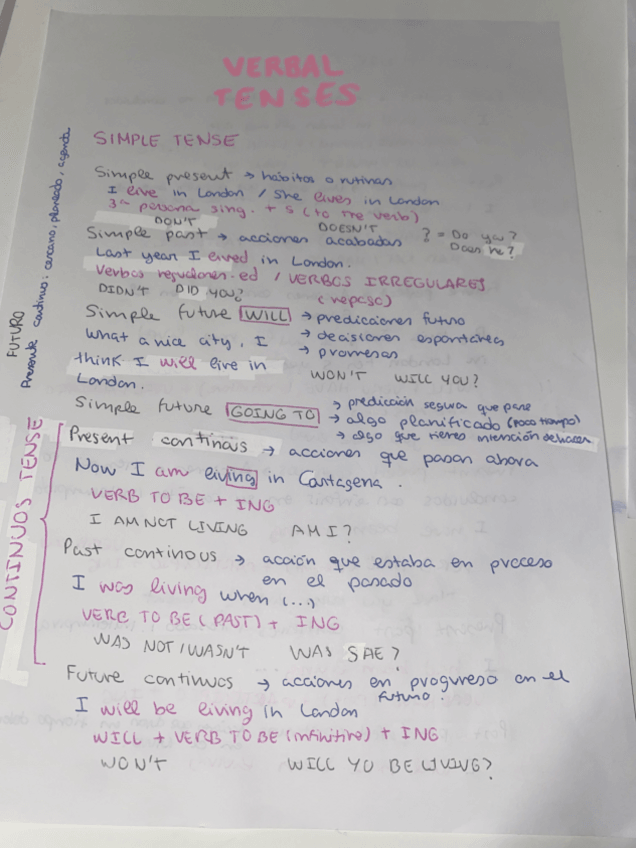 VERBAL
TENSES
SIMPLE TENSE
Simple present → hábitos o rutinas
I live in London / She lives in London
3ª persona sing. + s (to the verb)
DON'T DOESN'T ? = Do you?
Does he?
Simple past → acciones acabadas
Last year I lived in London.
Verbos regulares -ed / VERBOS IRREGULARES
(repaso)
DIDN'T DID YOU?
Simple future WILL → predicciones futuro
→ decisiones espontáneas
→ promesas
What a nice city, I
think I will live in
London.
WON'T WILL YOU?
Simple future GOING TO → predicción segura que pase
→ algo planificado (poco tiempo)
→ algo que tienes intención de hacer
Present continous → acciones que pasan ahora
Now I am living in Cartagena.
VERB TO BE + ING
I AM NOT LIVING AM I?
Past continous → acción que estaba en proceso
en el pasado
I was living when (...)
VERB TO BE (PAST) + ING
WAS NOT / WASN'T WAS SHE?
Future continuos → acciones en progreso en el
futuro.
I will be living in London
WILL + VERB TO BE (infinitive) + ING
WON'T WILL YO BE LIVING?
CONTINUOS TENSE
FUTURO
Presente continuo: cercano, planeado, agenda